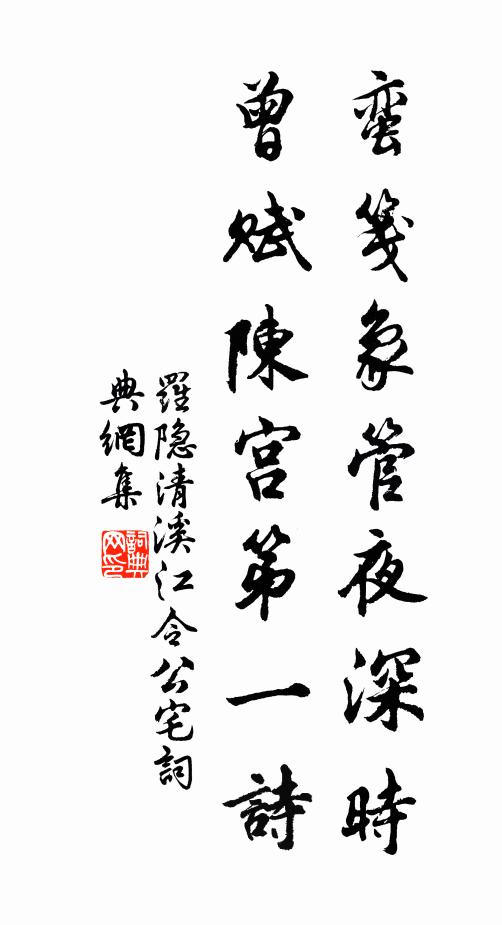 蛮箋象管夜深時
曾賦陳宫第一詩
羅隐清溪江令公宅詞
典網集
詞典网印